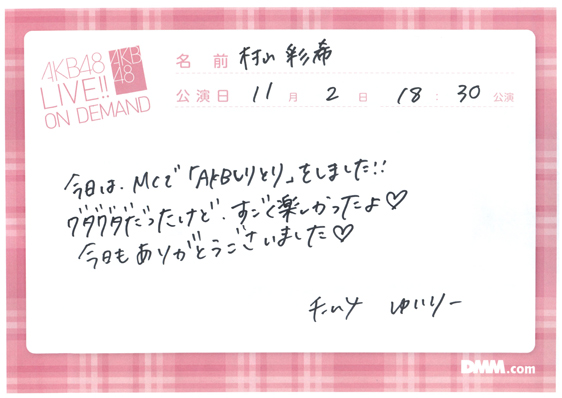 AKB48
LIVE!!
ON DEMAND
AKB
48
名前 村山彩希
公演日 11月2日 18:30公演
今日は、MCで「AKBしりとり」をしました!!
グダグダだったけど、すごく楽しかったよ♡
今日もありがとうございました♡
チームY ゆいりー
DMM.com